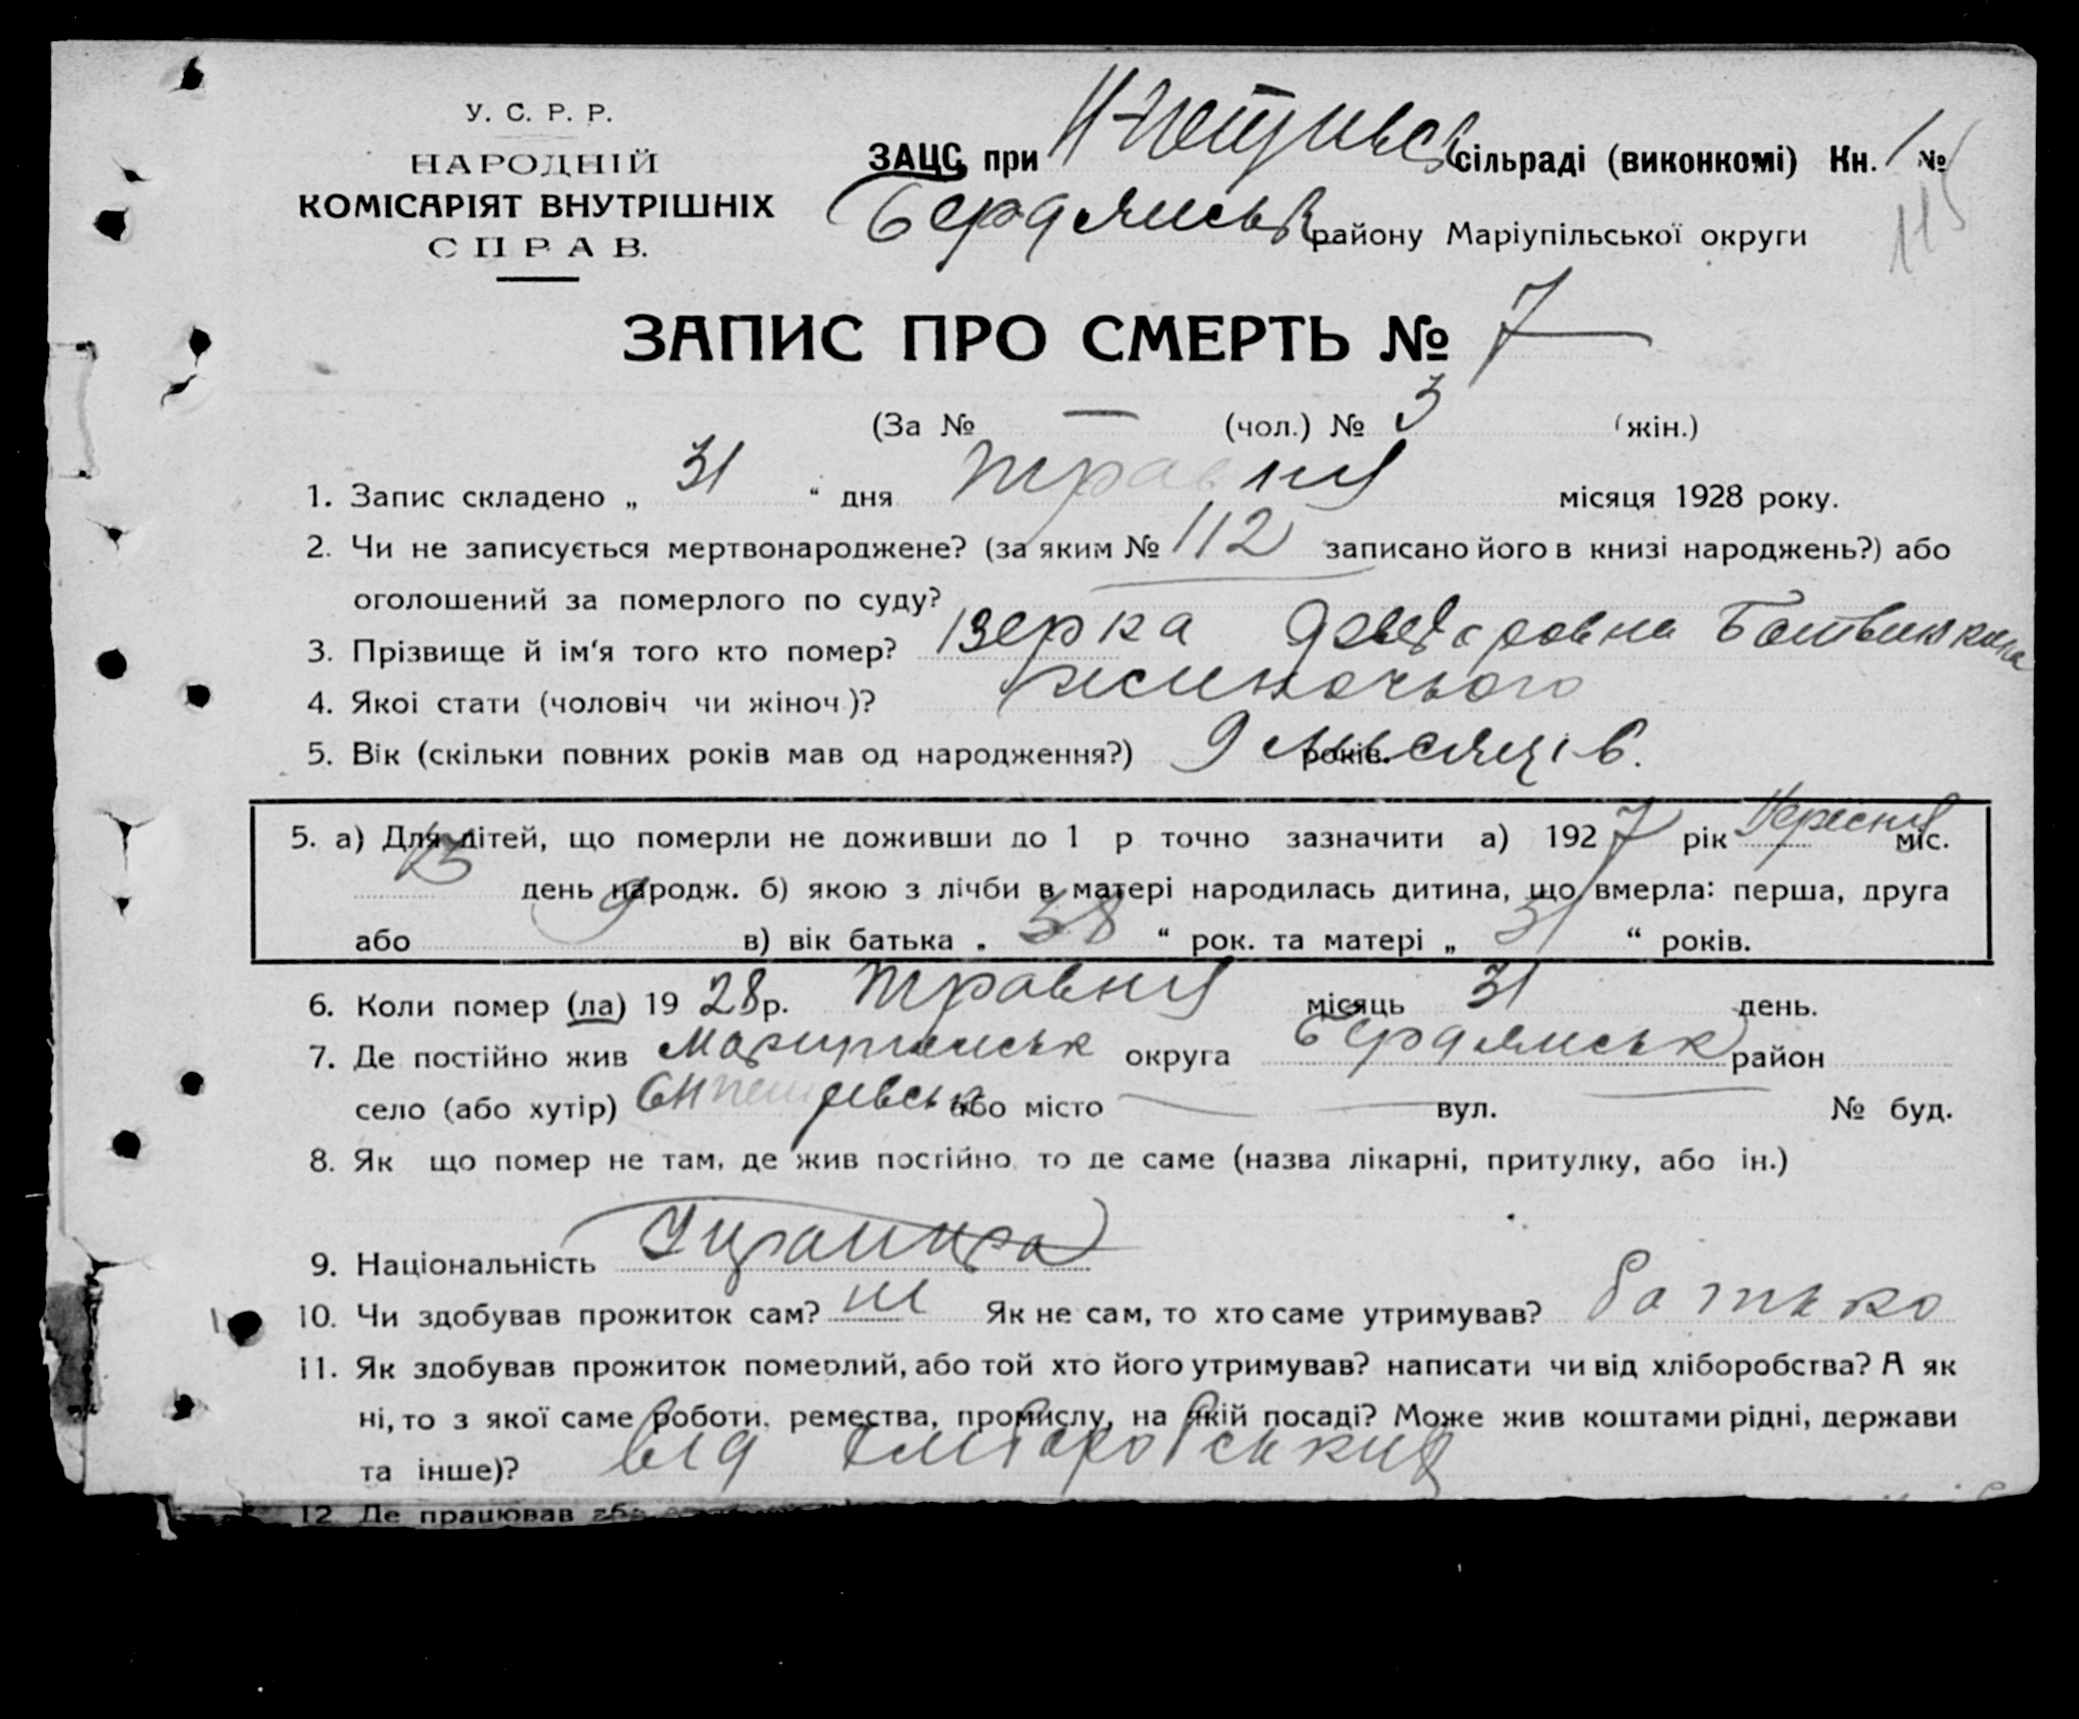 У. С. Р. Р.
НАРОДНІЙ
КОМІСАРІЯТ ВНУТРІШНІХ
СПРАВ.
ЗАЦС при сільраді (виконкомі) Кн. 1 №
115
Бердянськ району Маріупільської округи
ЗАПИС ПРО СМЕРТЬ № 7
(За № — (чол.) № 3 (жін.)
1. Запис складено „ 31 “ дня травня місяця 1928 року.
2. Чи не записується мертвонароджене? (за яким № 112 записано його в книзі народжень?) або
оголошений за померлого по суду?
3. Прізвище й ім'я того кто помер?
4. Якоі стати (чоловіч чи жіноч.)? жиночього
5. Вік (скільки повних років мав од народження?) 9 років. місяців.
5. а) Для дітей, що померли не доживши до 1 р точно зазначити а) 1927 рік Вересня міс.
день народж. б) якою з лічби в матері народилась дитина, що вмерла: перша, друга
або 9 в) вік батька „ 38 “ рок. та матері „ 31 “ років.
6. Коли помер (ла) 19 28 р. травня місяць 31 день.
7. Де постійно жив округа Бердянськ район
село (або хутір) або місто — вул. — № буд.
8. Як що помер не там, де жив постійно то де саме (назва лікарні, притулку, або ін.)
9. Національність
10. Чи здобував прожиток сам? ні Як не сам, то хто саме утримував? батько
11. Як здобував прожиток померлий, або той хто його утримував? написати чи від хліборобства? А як
ні, то з якої саме роботи, ремества, промислу, на якій посаді? Може жив коштами рідні, держави
та інше)? від
12 Де працював або